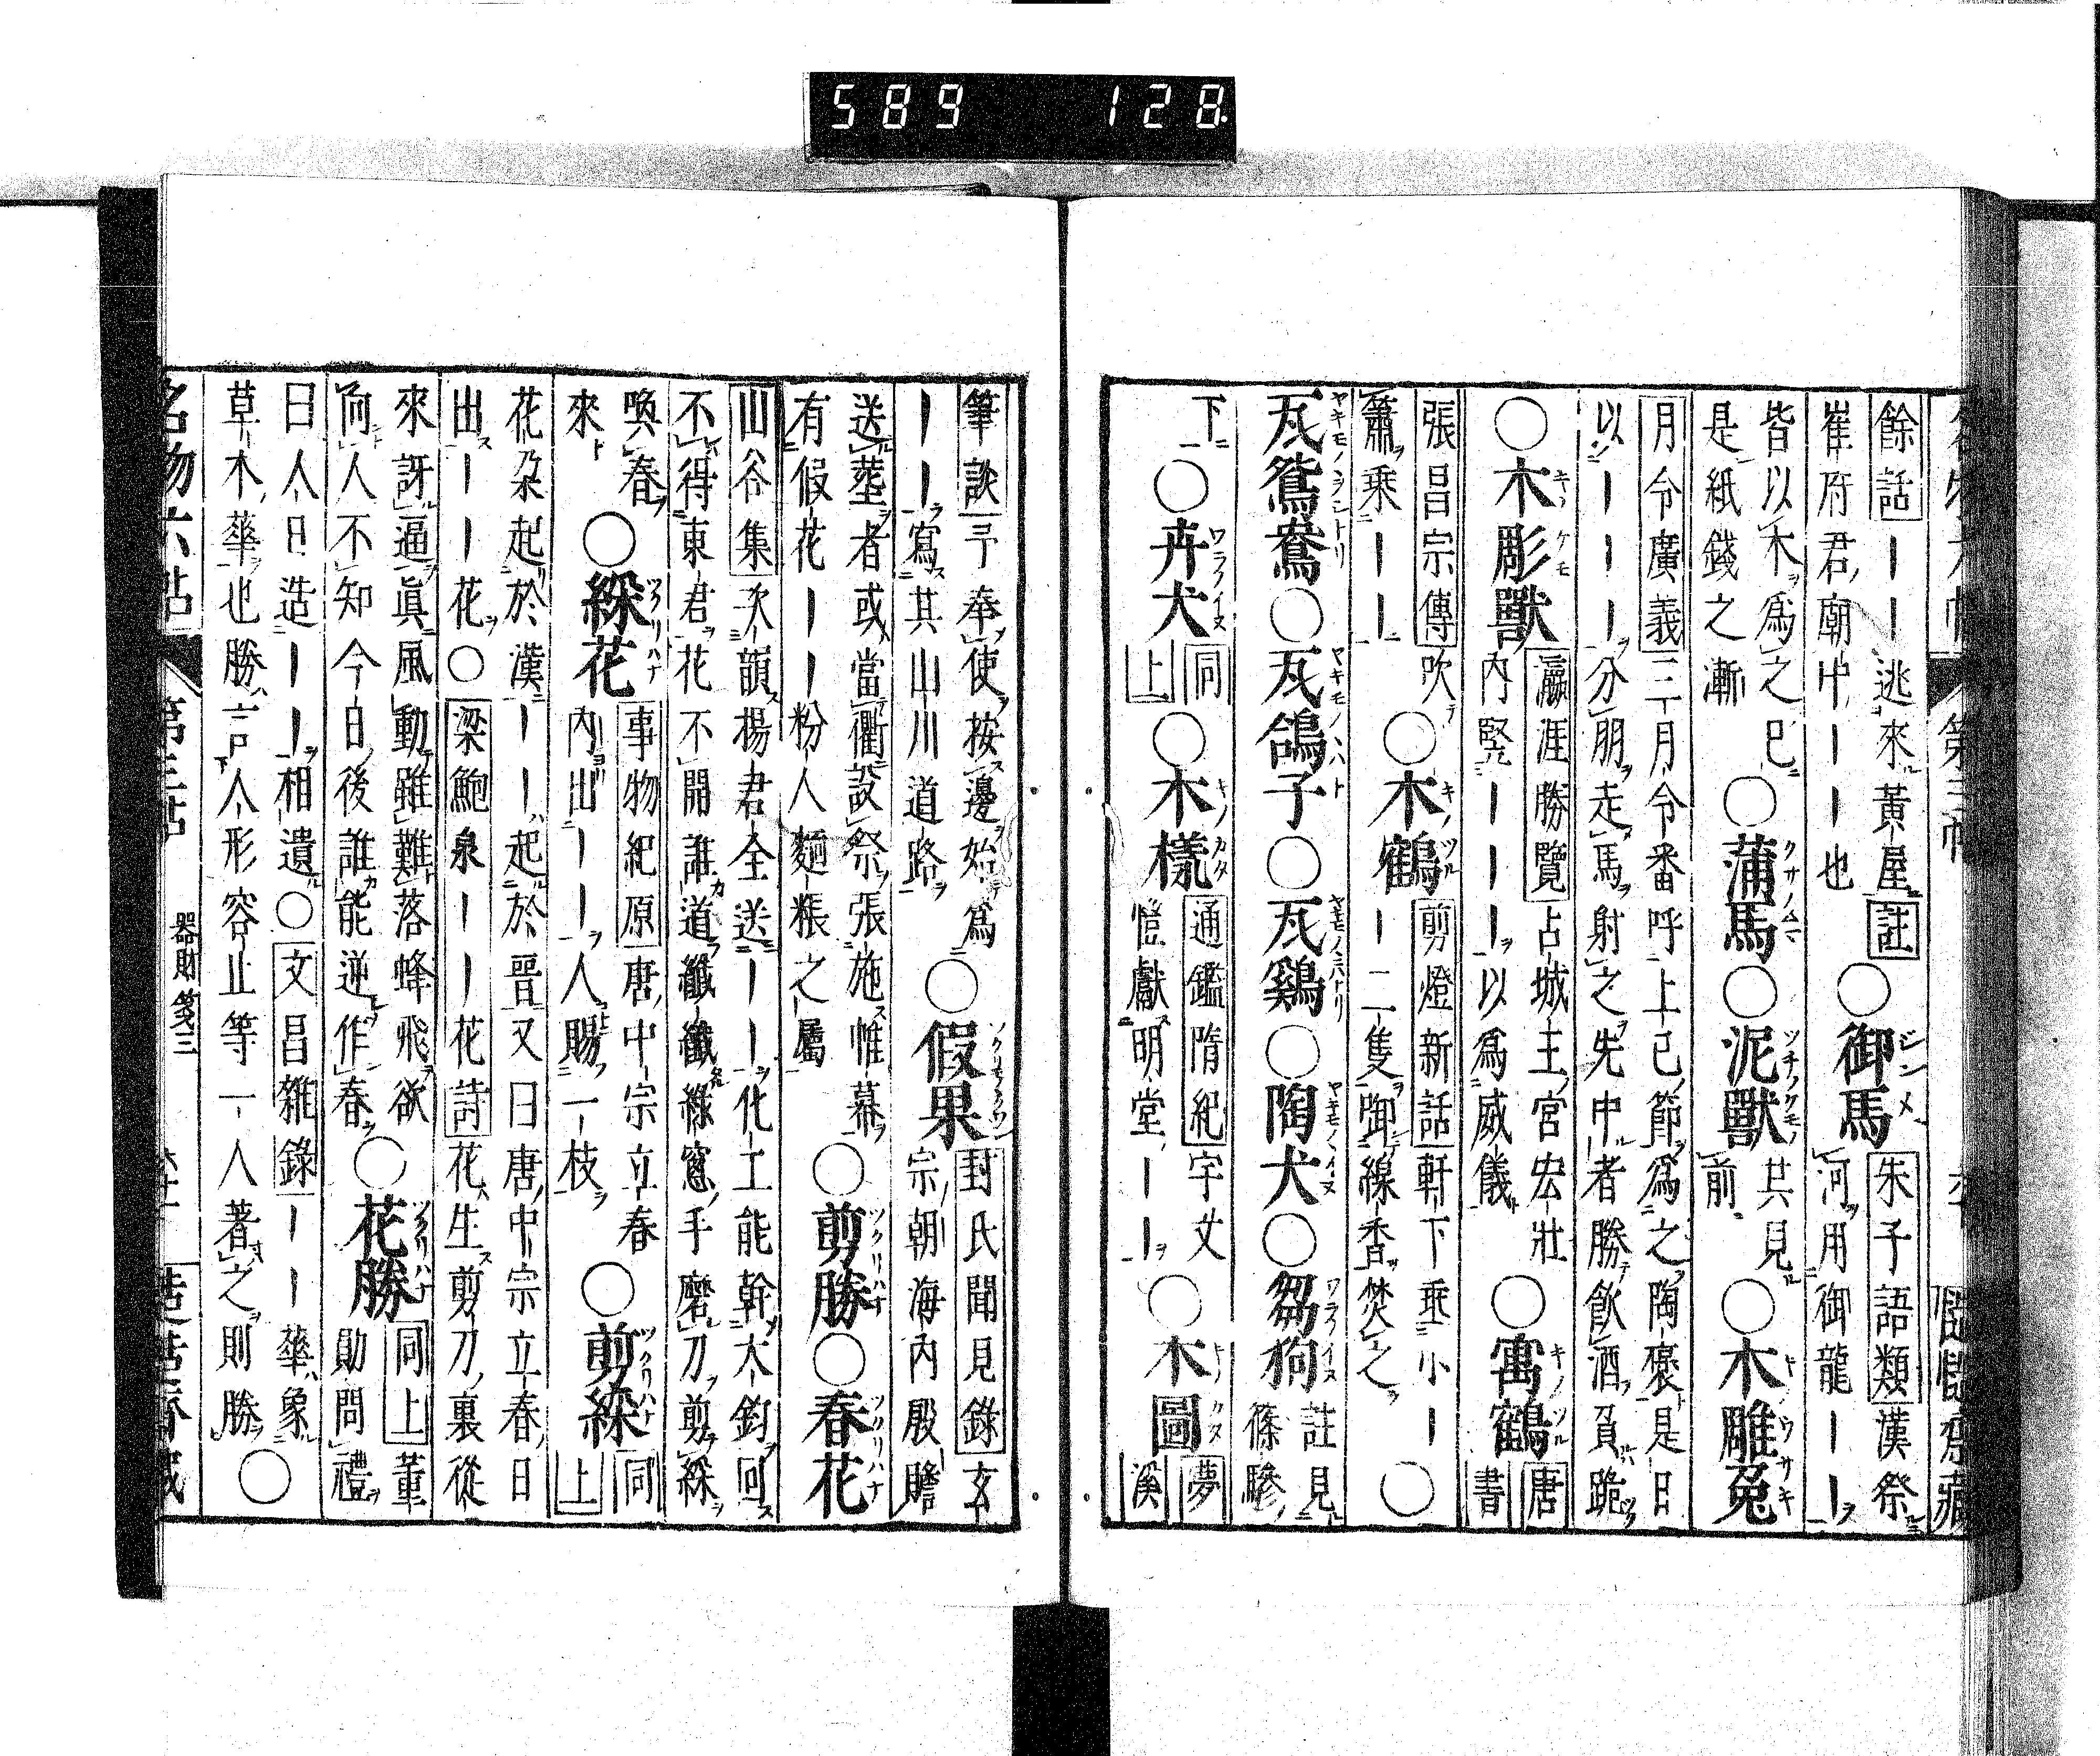 第三帖
餘話｜｜逃來黃屋註
崔府君廟中｜｜也
○御馬
朱子語類漢祭
河用御龍｜｜
皆以木爲之已
是紙錢之漸
○蒲馬○泥獸
其見
前
○木雕兔
月令廣義三月令番呼上巳節爲之陶褒是日
以｜｜｜分朋走馬射之先中者勝飲酒負跪
○木彫獸
瀛涯勝覽占城王宮宏壯
内竪｜｜｜以爲威儀
○寓鶴
唐
書
張昌宗傳吹
簫乘｜｜
○木鶴
剪燈新話軒下乘小｜
｜二隻御線香焚之
○
瓦鴛鴦○瓦鴿子○瓦鷄○陶犬○芻狗
註見
篠驂
下
○卉犬
同
上
○木樣
通鑑隋紀宇文
愷獻明堂｜｜
○木圖
夢
溪
筆談予奉使按邊始爲
｜｜寫其山川道路
○假果
封氏聞見錄玄
宗朝海内殷贍
送塟者或當衢設祭張施帷幕
有假花｜｜粉人麵粻之屬
○剪勝○春花
山谷集次韻揚君全送｜｜化工能幹大鈞回
不得東君花不開誰道纖纖綠窻手磨刀剪綵
喚春
來
○綵花
事物紀原唐中宗立春
内出｜｜人賜一枝
○剪綵
同
上
花朶起於漢｜｜起於晋又曰唐中宗立春日
出｜｜花○梁鮑泉｜｜花詩花生剪刀裏從
來訝逼眞風動雖難落蜂飛欲
向人不知今日後誰能逆作春
○花勝
同上董
勛問禮
曰人日造｜｜相遺○文昌雜錄｜｜華象
草木華也勝言人形容止等一人著之則勝
○
名物六帖
第三帖
器財箋三